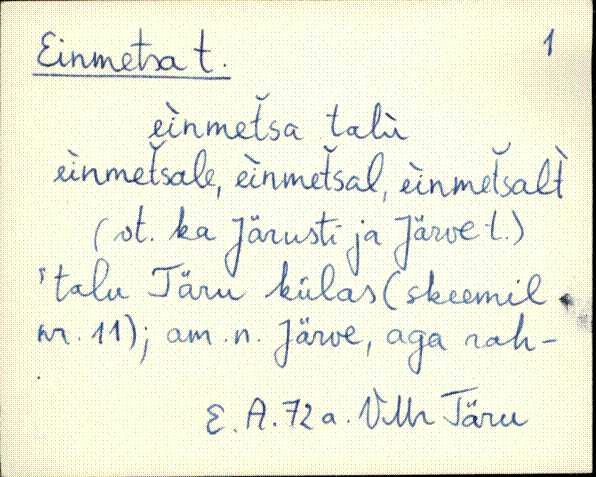 Einmetsa t. 1
eìnmet̆sa talù
eìnmet̆sale, eìnmet̆sal, eìnmet̆salt̀
(vt. ka Järusti ja Järve t.)
'talu Täru külas (skeemil
nr. 11); am. n. Järve, aga rah-
E. A. 72 a. VMr Täru